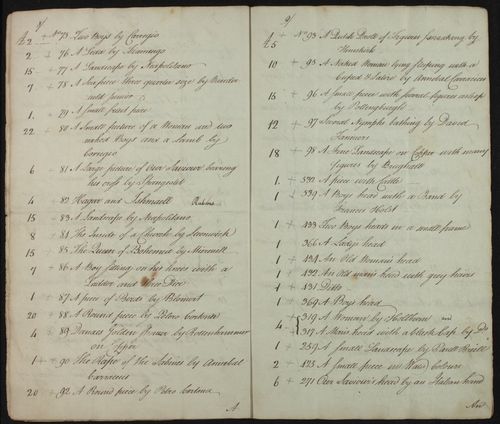 2 + No 73 Two Boys by Corregio
2 + 76 A Leda by
15 + 77 A Landscape by Neopolitano
7 + 78 A Seapiece three quarter size by Vander
veld junior
1 + 79 A Small fruit piece
22 + 80 A Small picture of a Woman and two
naked Boys and a Lamb by
Corregio
6 + 81 A Large picture of Our Saviour
his cross by
4 + 82 Hagar and Ishmaell Rubens
15 + 83 A Landscape by Neopolitano
8 + 84 The Inside of a Church by Steenwick
15 + 85 The Queen of Bohemia by
7 + 86 A Boy sitting on his knees with a
and three Dice
1 + 87 A piece of Birds by
20 + 88 A Round piece by Petro Cortona
4 + 89 Danaes Golden Shower by Rottenhammer
on Copper
1 + 90 The Rape of the Sabines by Annebal
Carracius
20 + 92 A Round piece by Petro Cortona
A
5 + No 93 A Dutch of Figures by
Hemskirk
10 + 95 A Naked Woman lying sleeping with a
Cupid & Satire by Annebal Carracius
15 + 96 A Small piece with several figures asleep
by
12 + 97 Several Nymphs bathing by David
18 + 98 A fine Landscape on Copper with many
figures by Brughall
1 + 532 A piece with Cattle
1 + 539 A Boys head with a Band by
Francis Holst
1 + 433 Two Boys heads in a small frame
1 + 366 A Ladys head
1 + 434 An Old Womans head
1 + 432 An Old mans head with grey hairs
1 + 431 Ditto
1 + 369 A Boys head
4 + 319 A Woman by Holben
317 A Mans head with a black Cap by Do
1 + 259 A Small Landscape by
2 + 125 A Small piece in Water Colours
6 + 271 Our Saviours head by an Italian hand
An